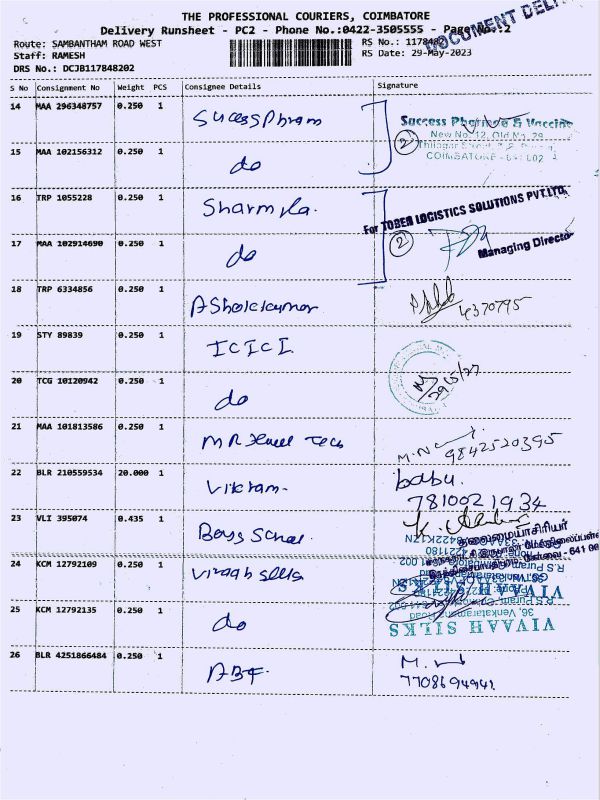 THE PROFESSIONAL COURIERS, COIMBATORE
Delivery Runsheet - PC2 - Phone No.:0422-3505555 - Page No.:2
DOCUMENT DEL
Route: SAMBANTHAM ROAD WEST
RS No.: 1178482
Staff: RAMESH
RS Date: 29-May-2023
DRS No.: DCJB117848202
S No Consignment No Weight PCS Consignee Details Signature
14 MAA 296348757 0.250 1 Sucess Phram
Success Pharma & Vaccine
New No. 12, Old No. 29
COIMBATORE - 641 002
2
15 MAA 102156312 0.250 1 do
16 TRP 1055228 0.250 1 Sharmila.
For TOBEN LOGISTICS SOLUTIONS PVT.LTD.
2
Managing Director
17 MAA 102914690 0.250 1 do
18 TRP 6334856 0.250 1 AShokkumar
4370795
19 STY 89839 0.250 1 ICICI
20 TCG 10120942 0.250 1 do
29/5/23
21 MAA 101813586 0.250 1 MR Jewel Tech
M.N
9842520395
22 BLR 210559534 20.000 1 Vikram.
babu.
7810021934
23 VLI 395074 0.435 1 Boys School.
தலைமையாசிரியர்
24 KCM 12792109 0.250 1 Vivaah Silks
25 KCM 12792135 0.250 1 do
VIVAAH SILKS
36, Venkataramana Road
26 BLR 4251866484 0.250 1 ABF.
7708694941